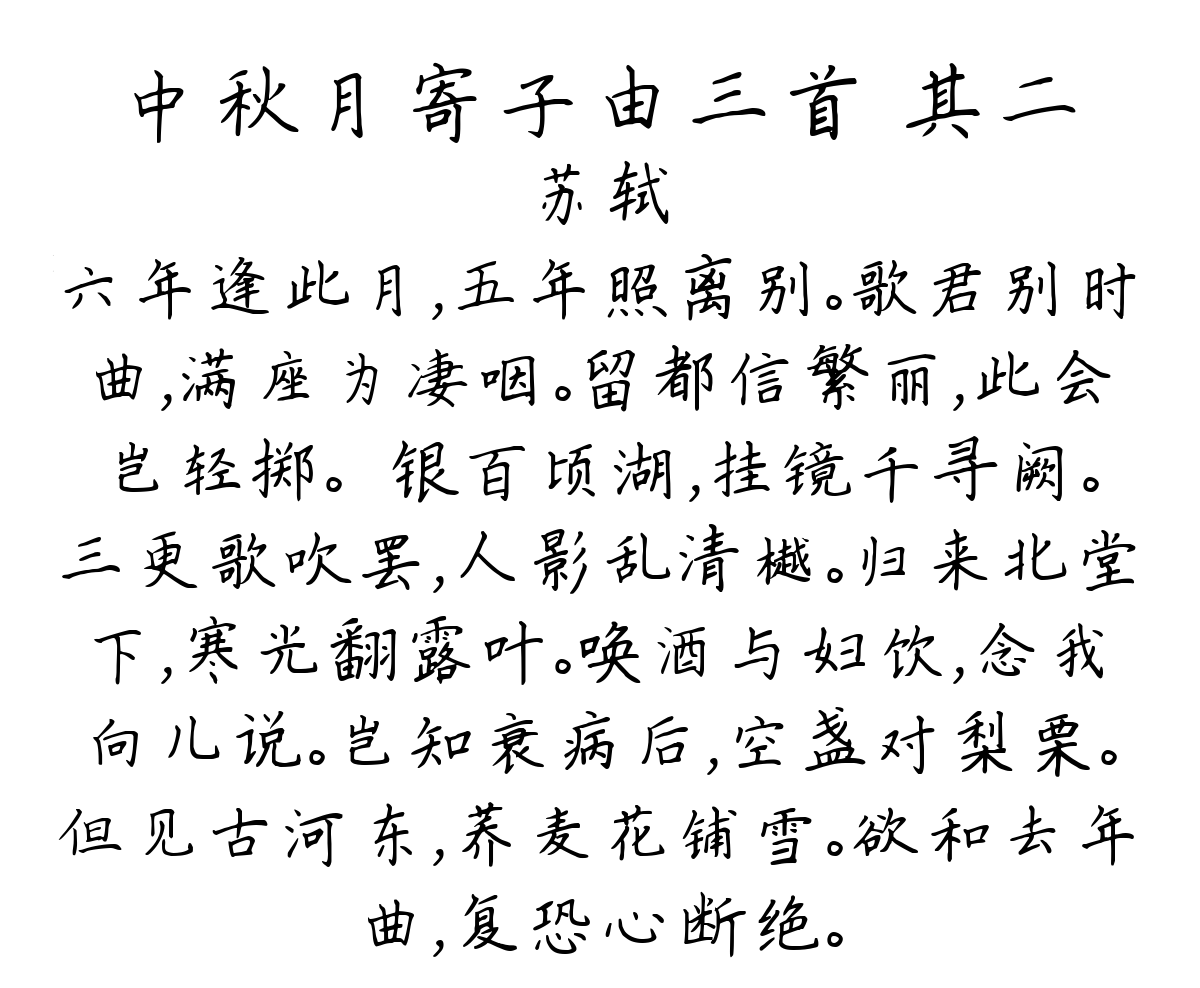 中秋月寄子由三首 其二
苏轼
六年逢此月,五年照离别。歌君别时
曲,满座为凄咽。留都信繁丽,此会
岂轻掷。银百顷湖,挂镜千寻阙。
三更歌吹罢,人影乱清樾。归来北堂
下,寒光翻露叶。唤酒与妇饮,念我
向儿说。岂知衰病后,空盏对梨栗。
但见古河东,荞麦花铺雪。欲和去年
曲,复恐心断绝。